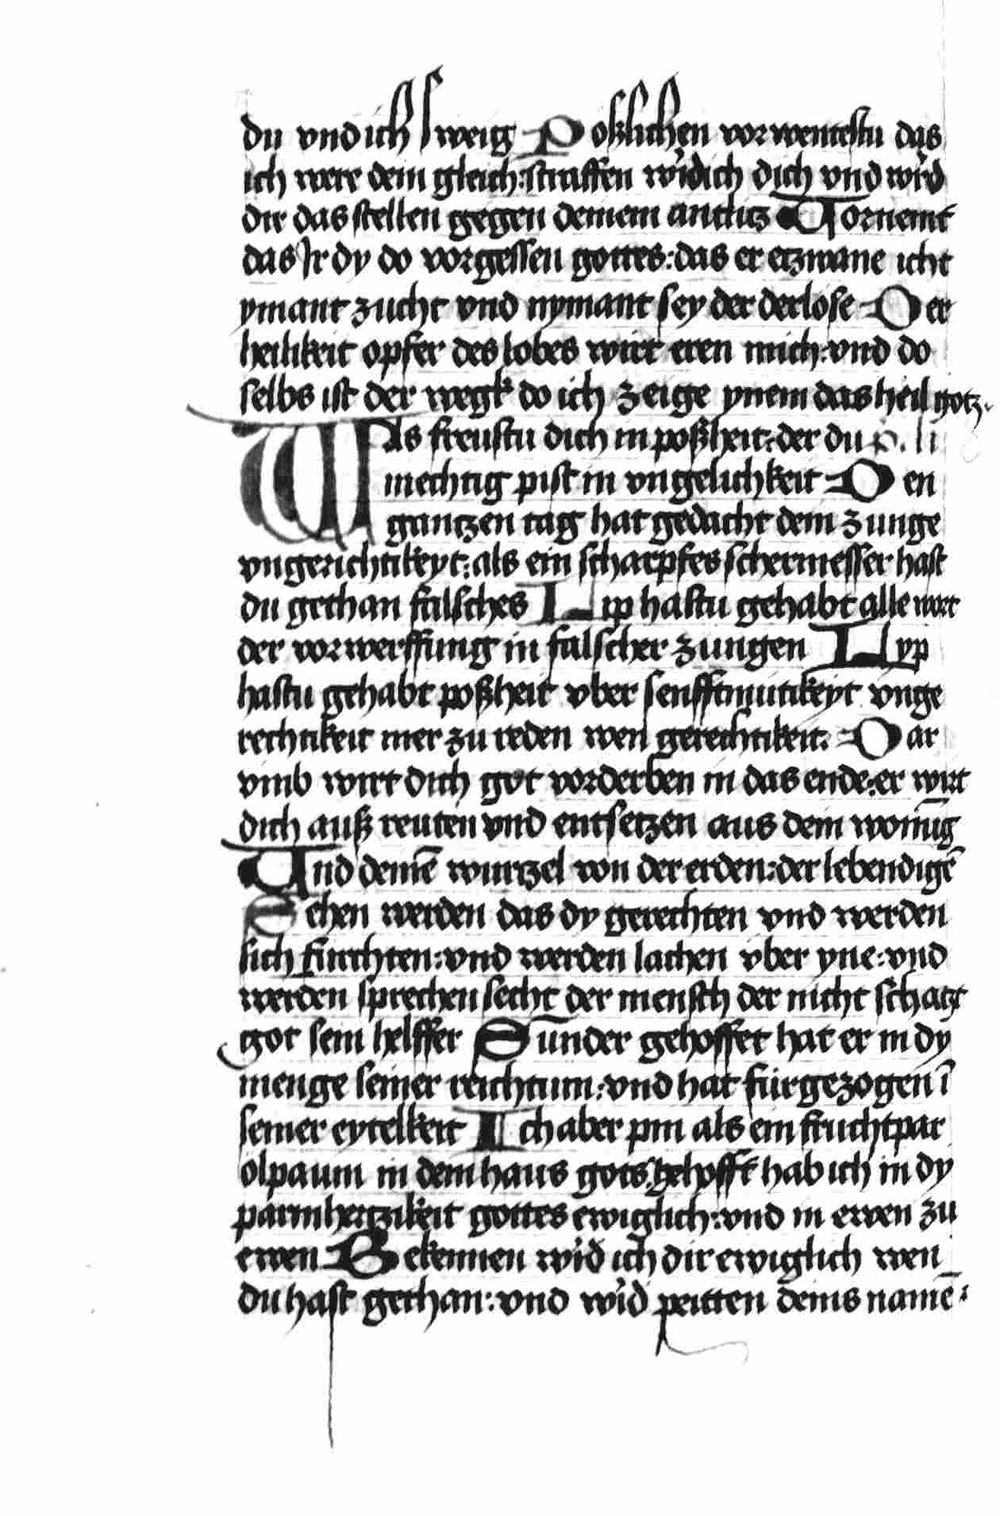 du vnd ich sweig Poßlichen vorwentestu das
ich were dein gleich: straffen wird ich dich vnd wird
dir das stellen gegen deinem antlitz Vornemt
das Ir dy do vorgessen gottes: das er etzwane icht
ymant zucht vnd nymant sey der derlose Der
heilikeit opfer des lobes wirt eren mich: vnd do
selbs ist der wegk do ich zeige ynem das heil gotz.
Was freustu dich in poßheit: der du
mechtig pist in vngelichkeit Den
gantzen tag hat gedacht dein zunge
vngerichtikeyt: als ein scharpfes schermesser hast
du gethan falsches Lip hastu gehabt alle wort
der vorwerffung in falscher zungen Lyp
hastu gehabt poßheit vber senfftmutikeyt vnge
rechtikeit mer zu reden wen gerechtikeit. Dar
vmb wirt dich got vorderben in das ende: er wirt
dich auß reuten vnd entsetzen aus dein wonūg
Vnd deinē wurtzel von der erden: der lebendigē
Sehen werden das dy gerechten vnd werden
sich furchten: vnd werden lachen vber yne: vnd
werden sprechen secht der mensch der nicht schatzt
got sein helffer Sunder gehoffet hat er in dy
menge seiner reichtum: vnd hat fürgezogen ī
seiner eytelkeit Ich aber pin als ein fruchtpar
olpaum in dem haus gots. gehofft hab ich in dy
parmhertzikeit gottes ewiglich: vnd in ewen zu
ewen Bekennen wird ich dir ewiglich wen
du hast gethan: vnd wird peitten deins namē